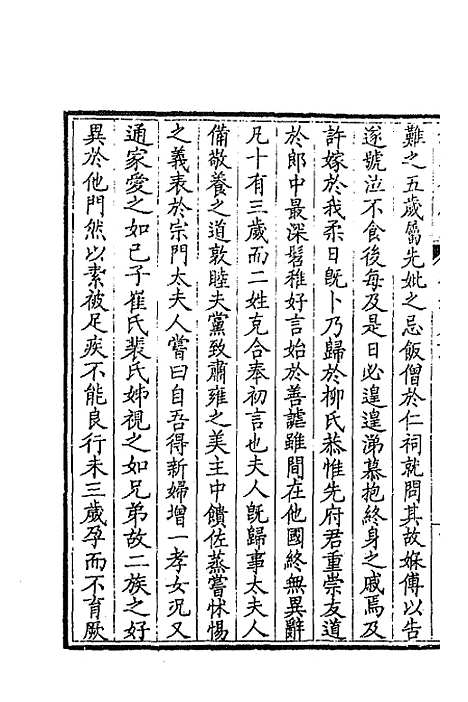 難之五歲屬先妣之忌飯僧於仁祠就問其故媬傅以告
遂號泣不食後每及是日必遑遑涕慕抱終身之戚焉及
許嫁於我柔日既卜乃歸於柳氏恭惟先府君重崇友道
於郎中最深髫稚好言始於善謔雖間在他國終無異辭
凡十有三歲而二姓克合奉初言也夫人既歸事太夫人
備敬養之道敦睦夫黨致肅雍之美主中饋佐蒸嘗怵惕
之義表於宗門太夫人嘗曰自吾得新婦增一孝女況又
通家愛之如己子崔氏裴氏姊視之如兄弟故二族之好
異於他門然以素被足疾不能良行未三歲孕而不育厥